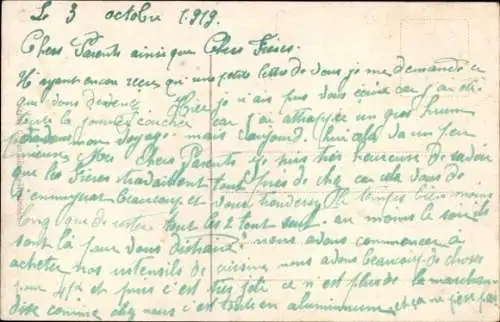 Le 3 octobre 1919.
Chers Parents ainsi que Chers Frères.
N'ayant encor recu qu'une petite lettre de vous je me demande ce
que vous devenez Hier je n'ais pas vous écrire car j'ai été
toute la journée couchée car j'ai attrapée un gros rhum
pendant mon voyage mais aujourd'hui cela va un peu
mieux Mes Chers Parents je suis très heureuse de savoir
que les Frères travaillent tout près de chez car cela vous
ennuyait beaucoup et vous le temps bien moins
long que de rester tout les 2 tout seul. au moins le soir ils
sont là pour vous distraire nous avons commencer à
acheter nos intensils de cuisine nous avons beaucoup de choses
pour et puis c'est très joli ce n'est plus de la marchan-
dise comme chez nous c'est tout en aluminium et ça ne pas